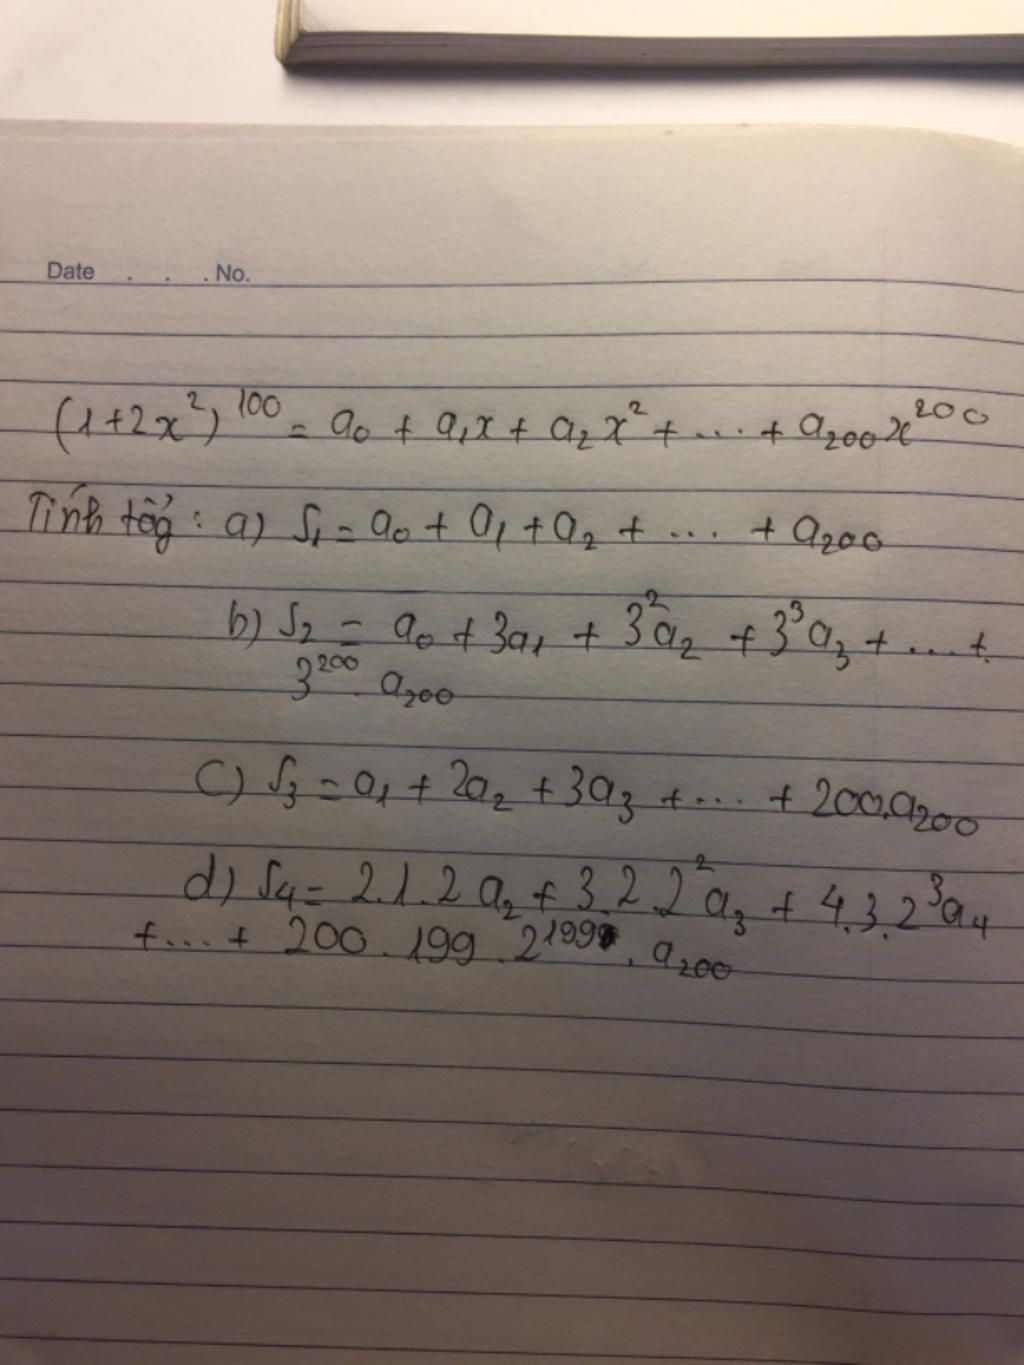 Date . . . No.
(1+2x²)¹⁰⁰ = a₀ + a₁x + a₂x² + ... + a₂₀₀x²⁰⁰
Tính tổg : a) S₁ = a₀ + a₁ + a₂ + ... + a₂₀₀
b) S₂ = a₀ + 3a₁ + 3²a₂ + 3³a₃ + ... +
3²⁰⁰ . a₂₀₀
c) S₃ = a₁ + 2a₂ + 3a₃ + ... + 200.a₂₀₀
d) S₄ = 2.1.2a₂ + 3.2.2²a₃ + 4.3.2³a₄
+ ... + 200 . 199 . 2¹⁹⁹ . a₂₀₀